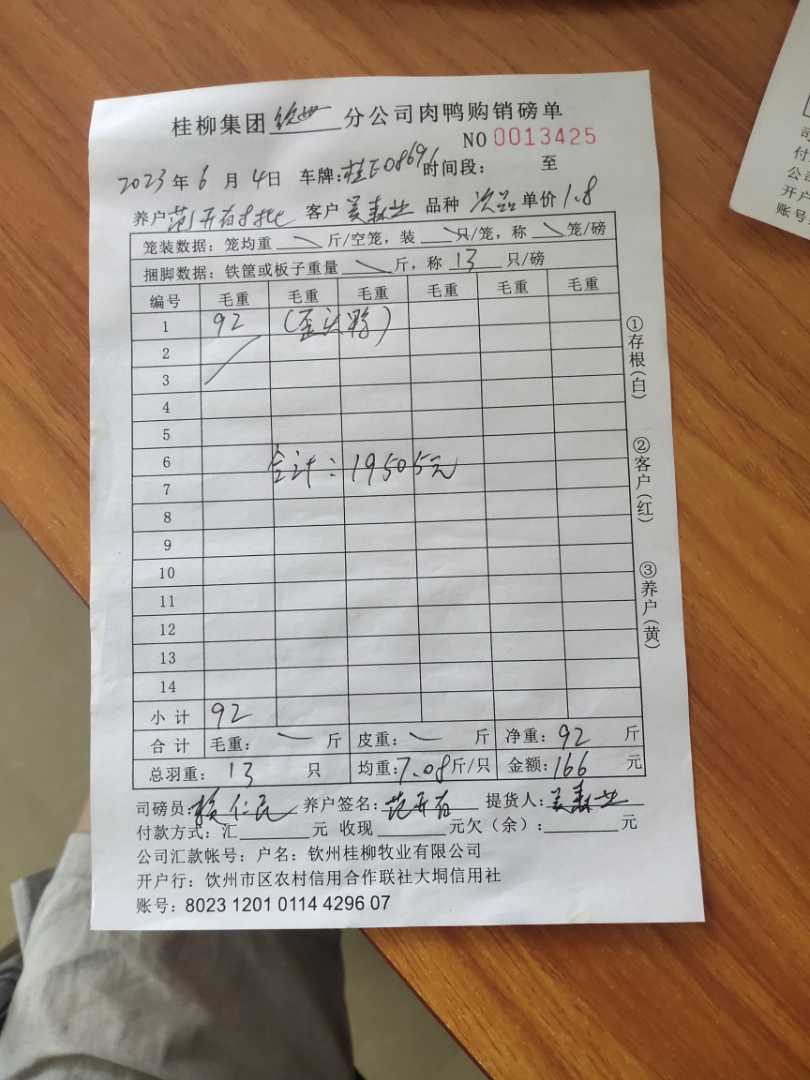 桂柳集团 钦州 分公司肉鸭购销磅单
NO 0013425
2023 年 6 月 4 日 车牌: 桂E08696 时间段: 至
养户 范开有 客户 吴森业 品种 次品 单价 1.8
笼装数据: 笼均重 斤/空笼, 装 只/笼, 称 笼/磅
捆脚数据: 铁筐或板子重量 斤, 称 13 只/磅
编号 毛重 毛重 毛重 毛重 毛重 毛重
1 92 (歪头鸭)
2
3
4
5
6
合计: 19505元
7
8
9
10
11
12
13
14
小计 92
合计 毛重: 斤 皮重: 斤 净重: 92 斤
总羽重: 13 只 均重: 7.08 斤/只 金额: 166 元
司磅员: 仁民 养户签名: 范开有 提货人: 吴森业
付款方式: 汇 元 收现 元欠(余): 元
公司汇款帐号: 户名: 钦州桂柳牧业有限公司
开户行: 饮州市区农村信用合作联社大垌信用社
账号: 8023 1201 0114 4296 07
①存根(白)
②客户(红)
③养户(黄)
司
付
公司
开户
账号